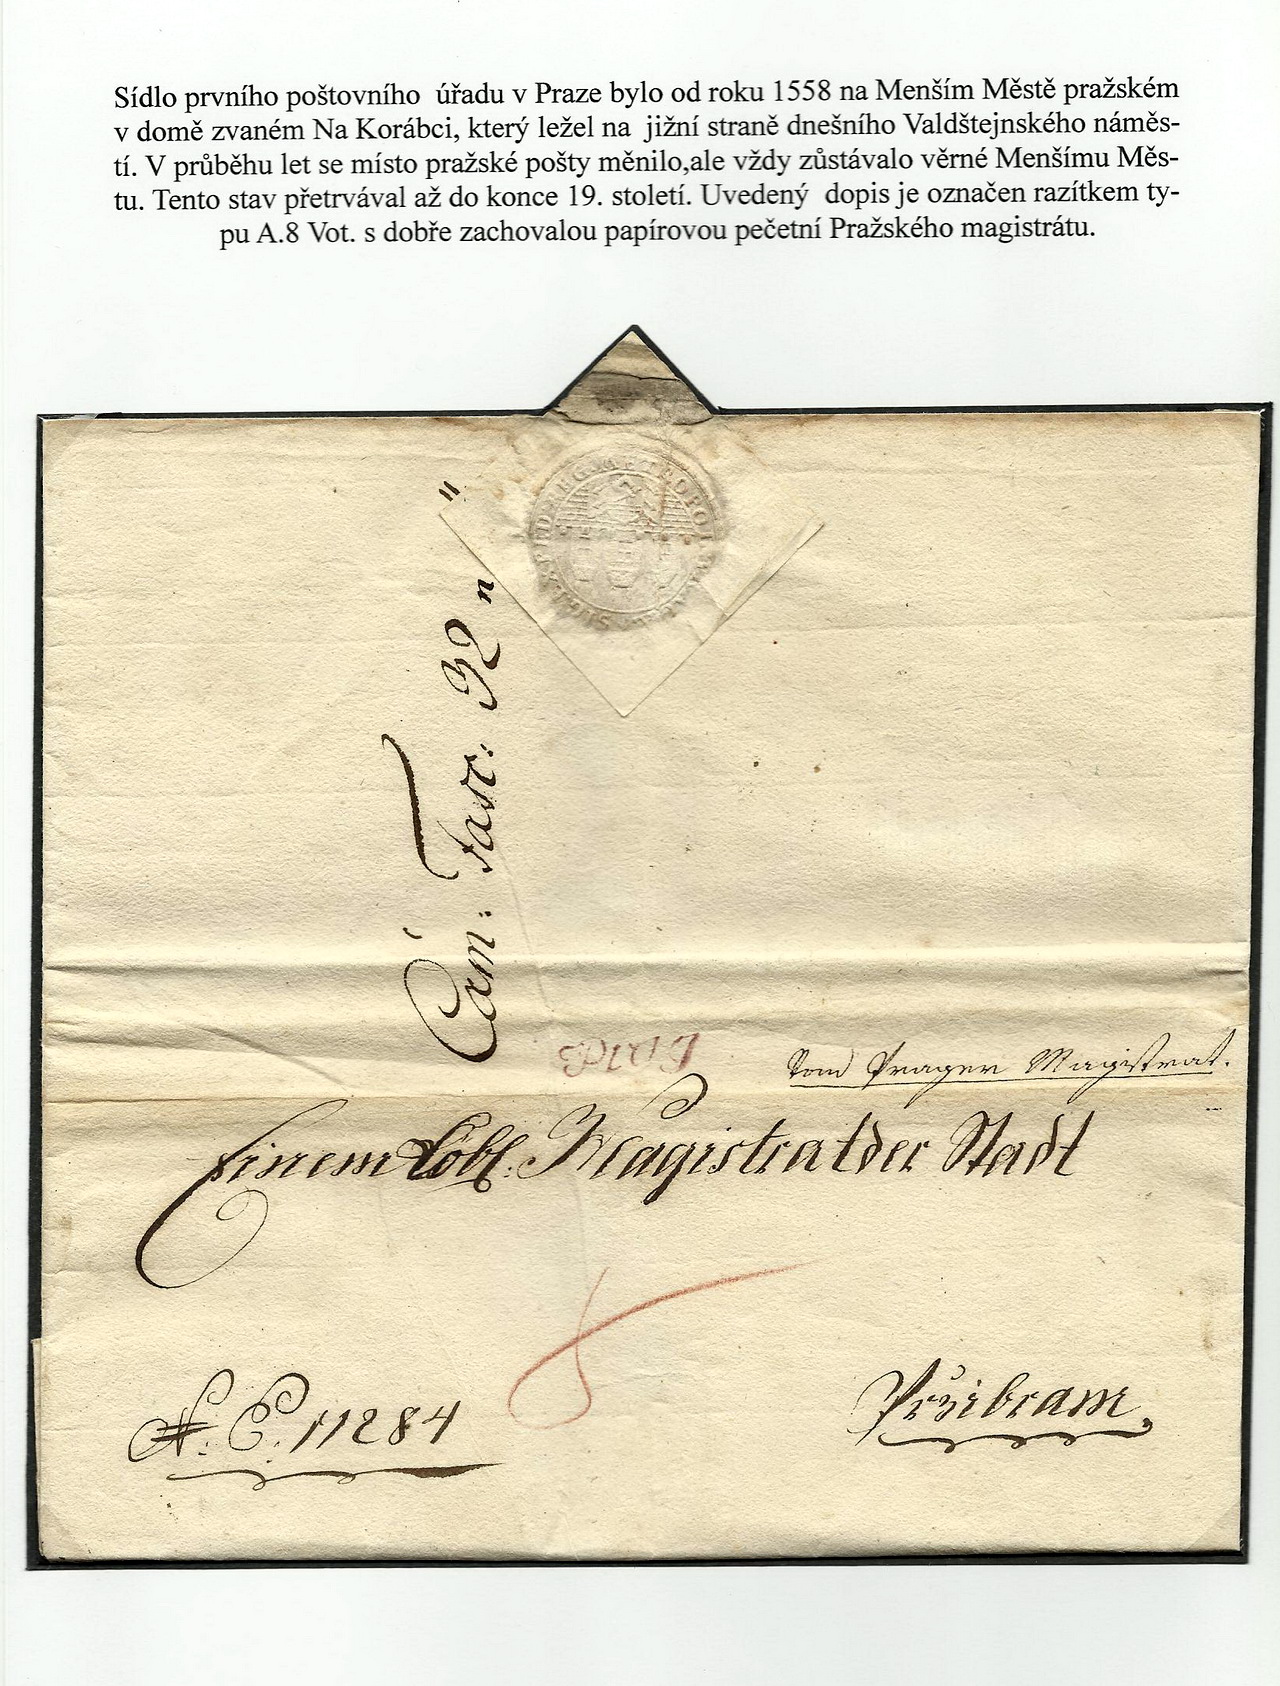 Sídlo prvního poštovního úřadu v Praze bylo od roku 1558 na Menším Městě pražském
v domě zvaném Na Korábci, který ležel na jižní straně dnešního Valdštejnského náměs-
tí. V průběhu let se místo pražské pošty měnilo,ale vždy zůstávalo věrné Menšímu Měs-
tu. Tento stav přetrvával až do konce 19. století. Uvedený dopis je označen razítkem ty-
pu A.8 Vot. s dobře zachovalou papírovou pečetní Pražského magistrátu.
Cam: Fasc: 32
Prager Magistrat.
Einem Löbl. Magistrat der Stadt
N. E. 11284
Przibram